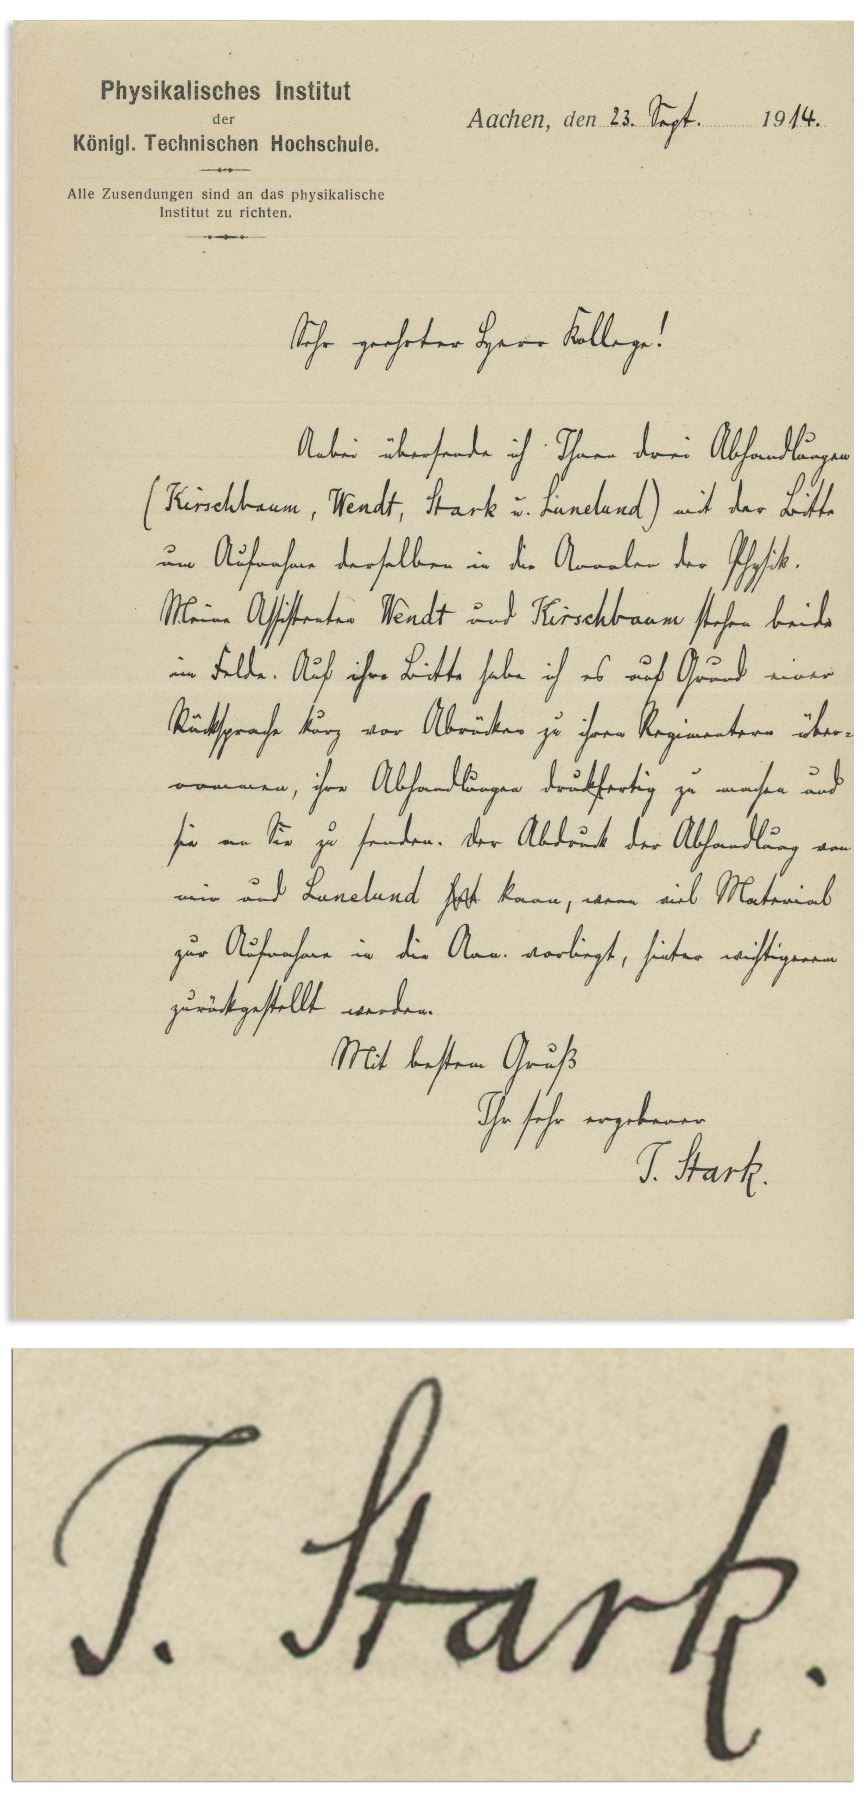 Physikalisches Institut
der
Königl. Technischen Hochschule.
Alle Zusendungen sind an das physikalische
Institut zu richten.
Aachen, den 23. Sept. 1914.
Sehr geehrter Herr Kollege!
Anbei übersende ich Ihnen drei Abhandlungen
(Kirschbaum, Wendt, Stark u. Lunelund) mit der Bitte
um Aufnahme derselben in die Annalen der Physik.
Meine Assistenten Wendt und Kirschbaum stehen beide
im Felde. Auf ihre Bitte habe ich es auf Grund einer
Rücksprache kurz vor Abrücken zu ihren Regimentern über-
nommen, ihre Abhandlungen druckfertig zu machen und
sie an Sie zu senden. Der Abdruck der Abhandlung von
mir und Lunelund kann, wenn viel Material
zur Aufnahme in die Ann. vorliegt, hinter wichtigerem
zurückgestellt werden.
Mit bestem Gruß
Ihr sehr ergebener
J. Stark.
J. Stark.